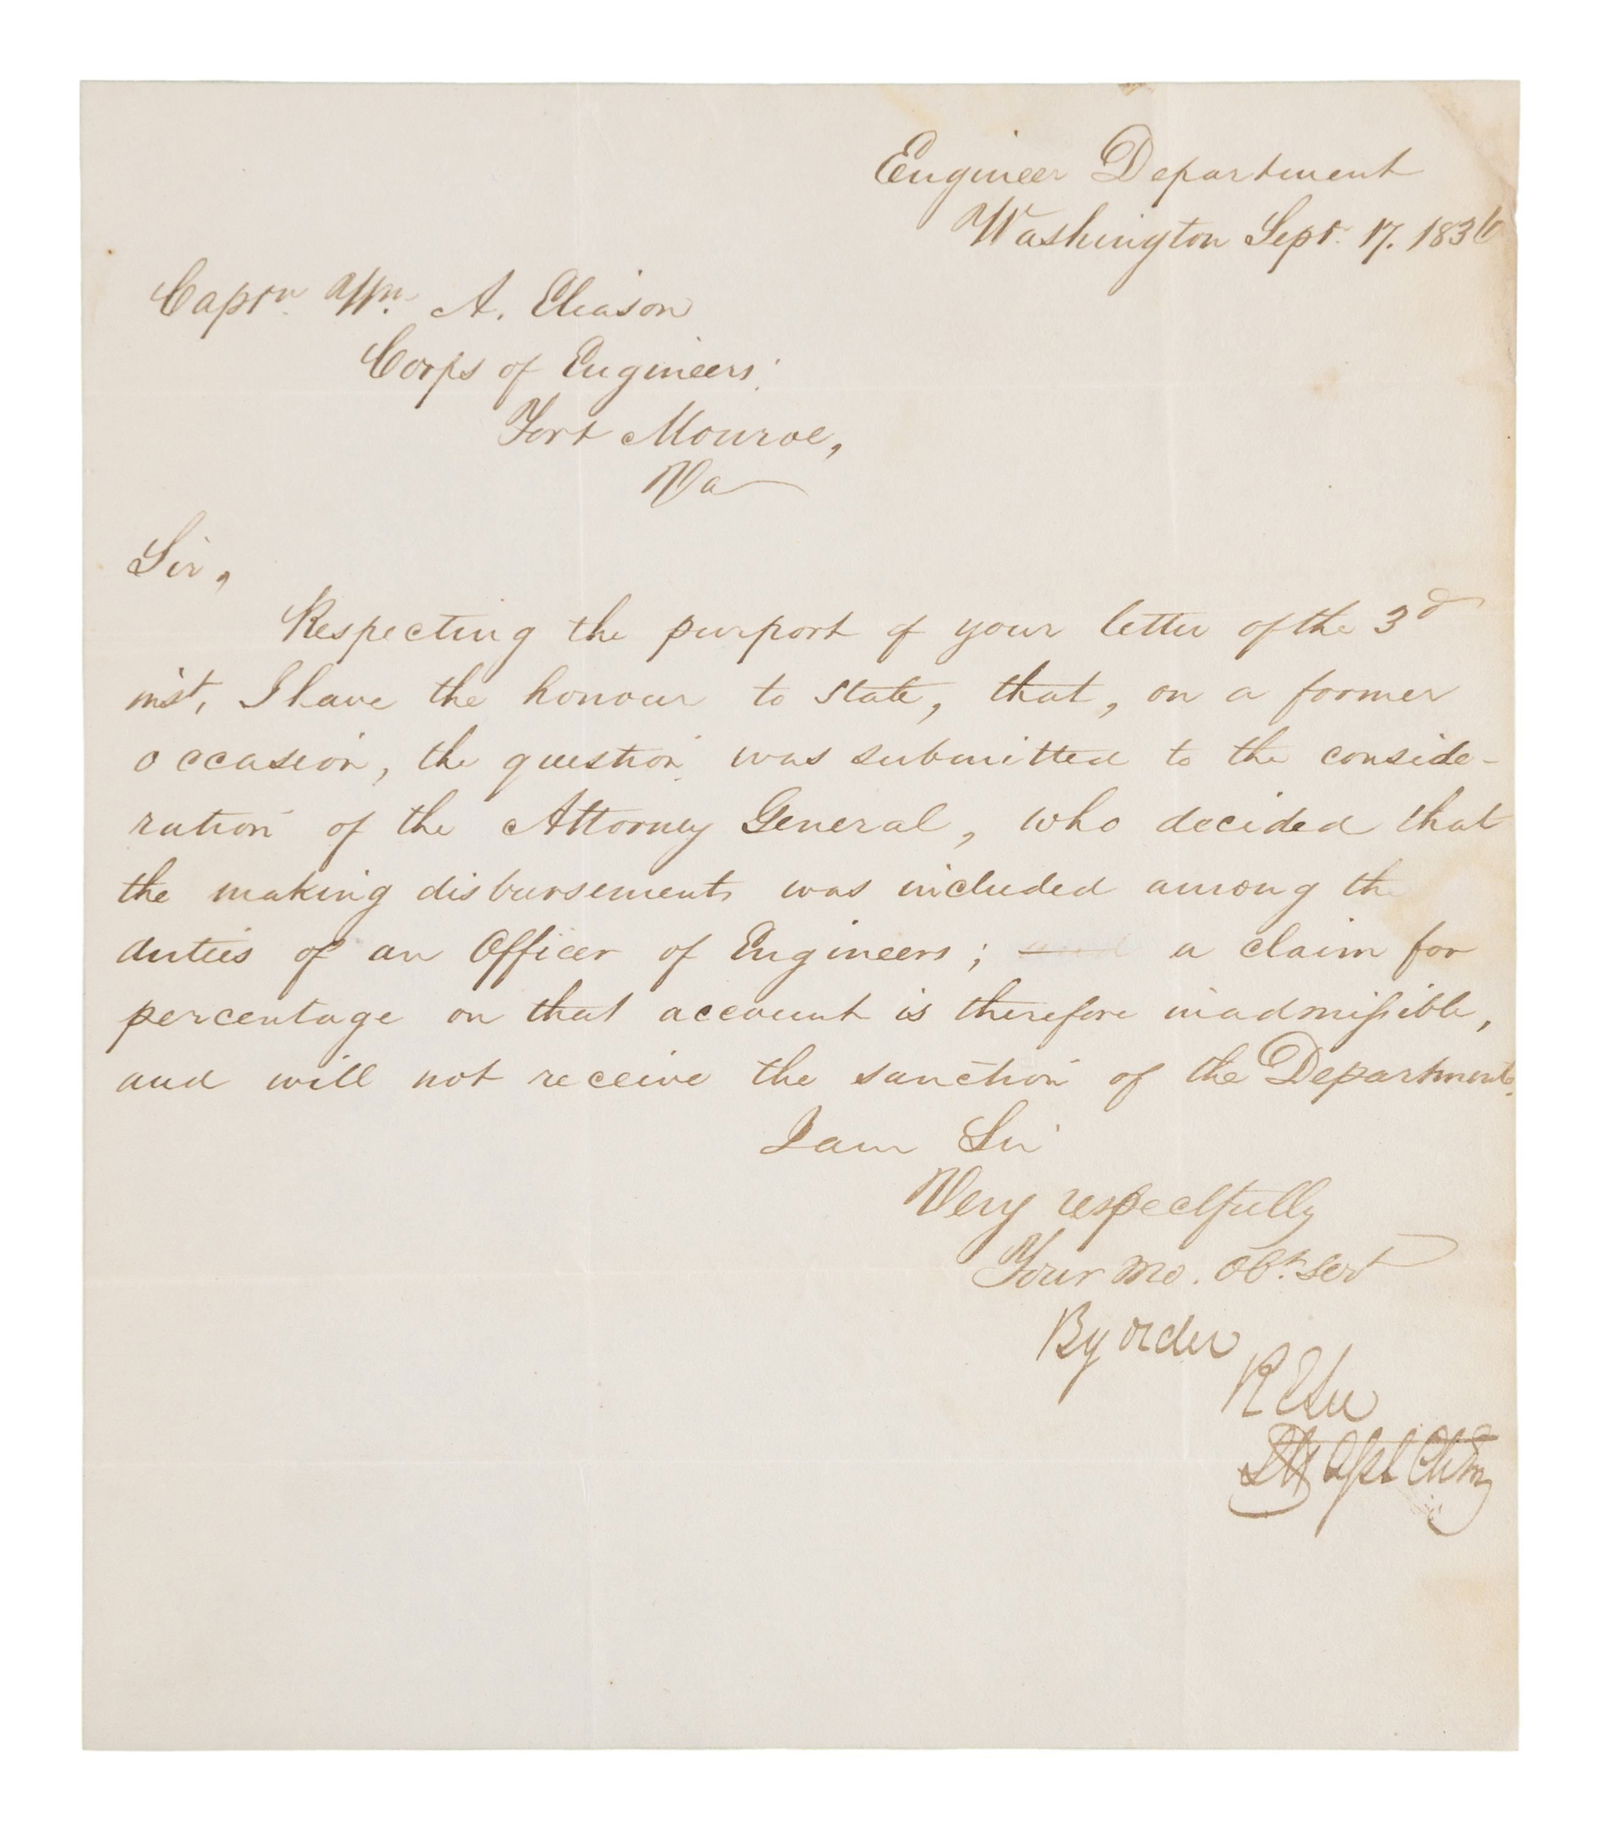 Engineer Department
Washington Sept. 17. 1836
Captn. Wm. A. Eliason
Corps of Engineers;
Fort Monroe,
Va
Sir,
Respecting the purport of your letter of the 3d
inst, I have the honour to state, that, on a former
occasion, the question was submitted to the conside-
ration of the Attorney General, who decided that
the making disbursements was included among the
duties of an Officer of Engineers; a claim for
percentage on that account is therefore inadmissible,
and will not receive the sanction of the Department.
I am Sir
Very respectfully
Your Mo. Obt. Sert
By order
R E Lee